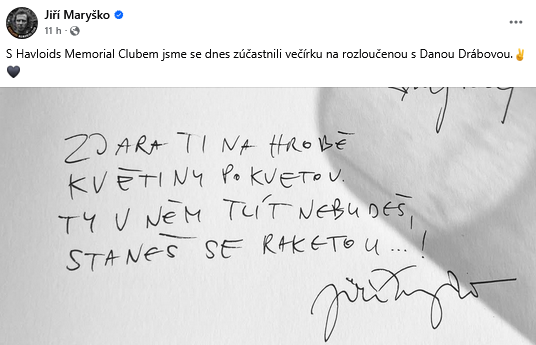 Jiří Maryško
11 h ·
S Havloids Memorial Clubem jsme se dnes zúčastnili večírku na rozloučenou s Danou Drábovou.✌️
🖤
ZDARA TI NA HROBĚ
KVĚTINY POKVETOU.
TY V NĚM TLÍT NEBUDEŠ,
STANEŠ SE RAKETOU...!